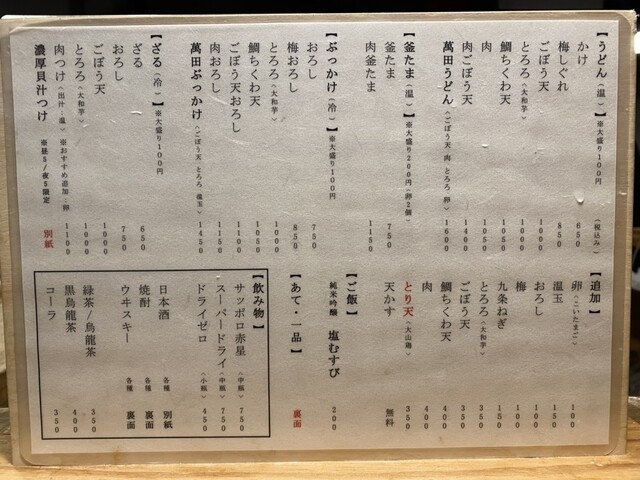 【うどん（温）】※大盛り100円 （税込み）
かけ 650
梅しぐれ 850
ごぼう天 1000
とろろ〈大和芋〉 1000
鯛ちくわ天 1050
肉 1050
肉ごぼう天 1400
萬田うどん〈ごぼう天/肉/とろろ/卵〉 1600
【釜たま（温）】※大盛り200円〈卵2個〉
釜たま 750
肉釜たま 1150
【ぶっかけ（冷）】※大盛り100円
おろし 750
梅おろし 850
とろろ〈大和芋〉 1000
鯛ちくわ天 1050
ごぼう天おろし 1100
肉おろし 1150
萬田ぶっかけ〈ごぼう天/とろろ/温玉〉 1450
【ざる（冷）】※大盛り100円
ざる 650
おろし 750
ごぼう天 1000
とろろ〈大和芋〉 1000
肉つけ〈出汁：温〉※おすすめ追加：卵 1100
濃厚貝汁つけ ※昼5/夜5限定 別紙
【追加】
卵〈こいたまご〉 100
温玉 150
おろし 100
梅 100
九条ねぎ 150
とろろ〈大和芋〉 350
ごぼう天 350
鯛ちくわ天 400
肉 400
とり天〈大山鶏〉 350
天かす 無料
【ご飯】
純米吟醸 塩むすび 200
【あて・一品】 裏面
【飲み物】
サッポロ赤星〈中瓶〉 750
スーパードライ〈中瓶〉 750
ドライゼロ〈小瓶〉 450
日本酒 各種 別紙
焼酎 各種 裏面
ウヰスキー 各種 裏面
緑茶/烏龍茶 350
黒烏龍茶 400
コーラ 350